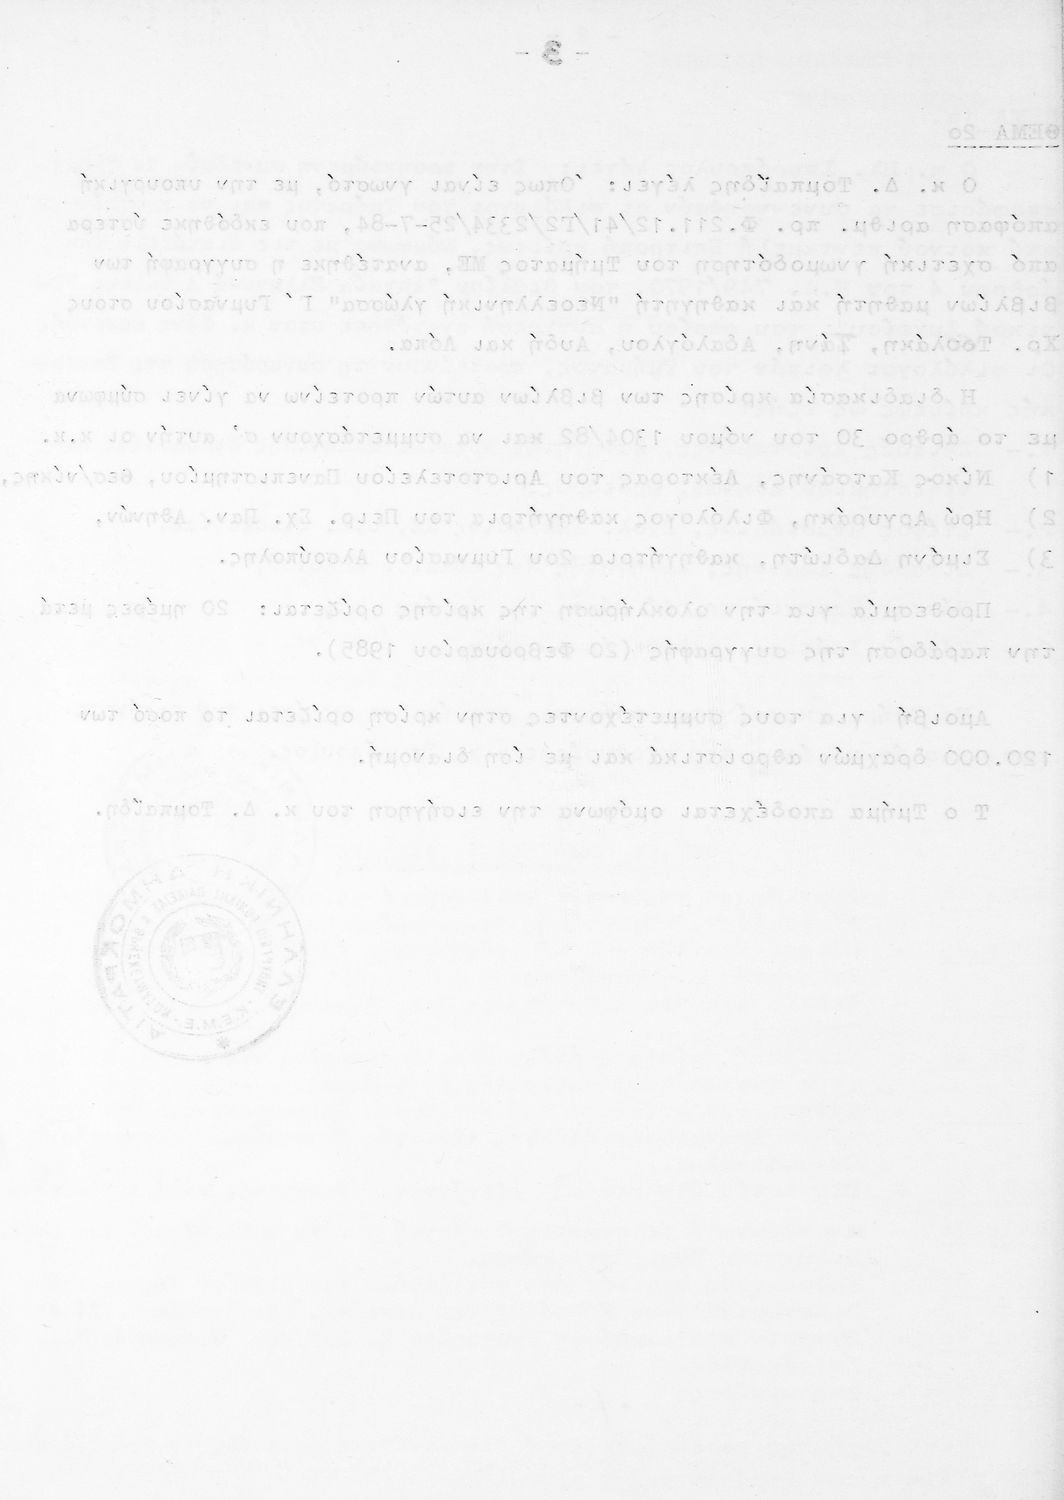 - 3 -
ΘΕΜΑ 2ο
Ο κ. Δ. Τομπαΐδης λέγει: Όπως είναι γνωστό, με την υπουργική
απόφαση αριθμ. πρ. Φ.211.12/41/Γ2/2334/25-7-84, που εκδόθηκε ύστερα
από σχετική γνωμοδότηση του Τμήματος ΜΕ, ανατέθηκε η συγγραφή των
βιβλίων μαθητή και καθηγητή "Νεοελληνική γλώσσα" Γ΄ Γυμνασίου στους
Χρ. Τσολάκη, Αδαλόγλου, Αυδή και Λόπα.
Η διαδικασία κρίσης των βιβλίων αυτών προτείνω να γίνει σύμφωνα
με το άρθρο 30 του νόμου 1304/82 και να συμμετάσχουν σ' αυτήν οι κ.κ.
1) Νίκος Κατσάνης, Λέκτορας του Αριστοτελείου Πανεπιστημίου, Θεσ/νίκης,
2) Ηρώ Αργυράκη, Φιλόλογος καθηγήτρια του Πειρ. Σχ. Παν. Αθηνών,
3) Σιμόνη Δαδιώτη, καθηγήτρια 2ου Γυμνασίου Αλσούπολης.
Προθεσμία για την ολοκλήρωση της κρίσης ορίζεται: 20 ημέρες μετά
την παράδοση της συγγραφής (20 Φεβρουαρίου 1985).
Αμοιβή για τους συμμετέχοντες στην κρίση ορίζεται το ποσό των
120.000 δραχμών αθροιστικά και με ίση διανομή.
Τ ο Τμήμα αποδέχεται ομόφωνα την εισήγηση του κ. Δ. Τομπαΐδη.
ΕΛΛΗΝΙΚΗ ΔΗΜΟΚΡΑΤΙΑ
Κ.Ε.Μ.Ε.